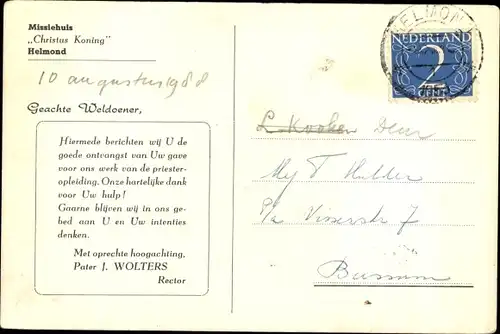 Missiehuis
„Christus Koning"
Helmond
10 augustus 1988
Geachte Weldoener,
Hiermede berichten wij U de
goede ontvangst van Uw gave
voor ons werk van de priester-
opleiding. Onze hartelijke dank
voor Uw hulp!
Gaarne blijven wij in ons ge-
bed aan U en Uw intenties
denken.
Met oprechte hoogachting,
Pater J. WOLTERS
Rector
HELMOND
NEDERLAND
2
CENT
Mej T Mulder
P/a Visserstr 7
Bussum